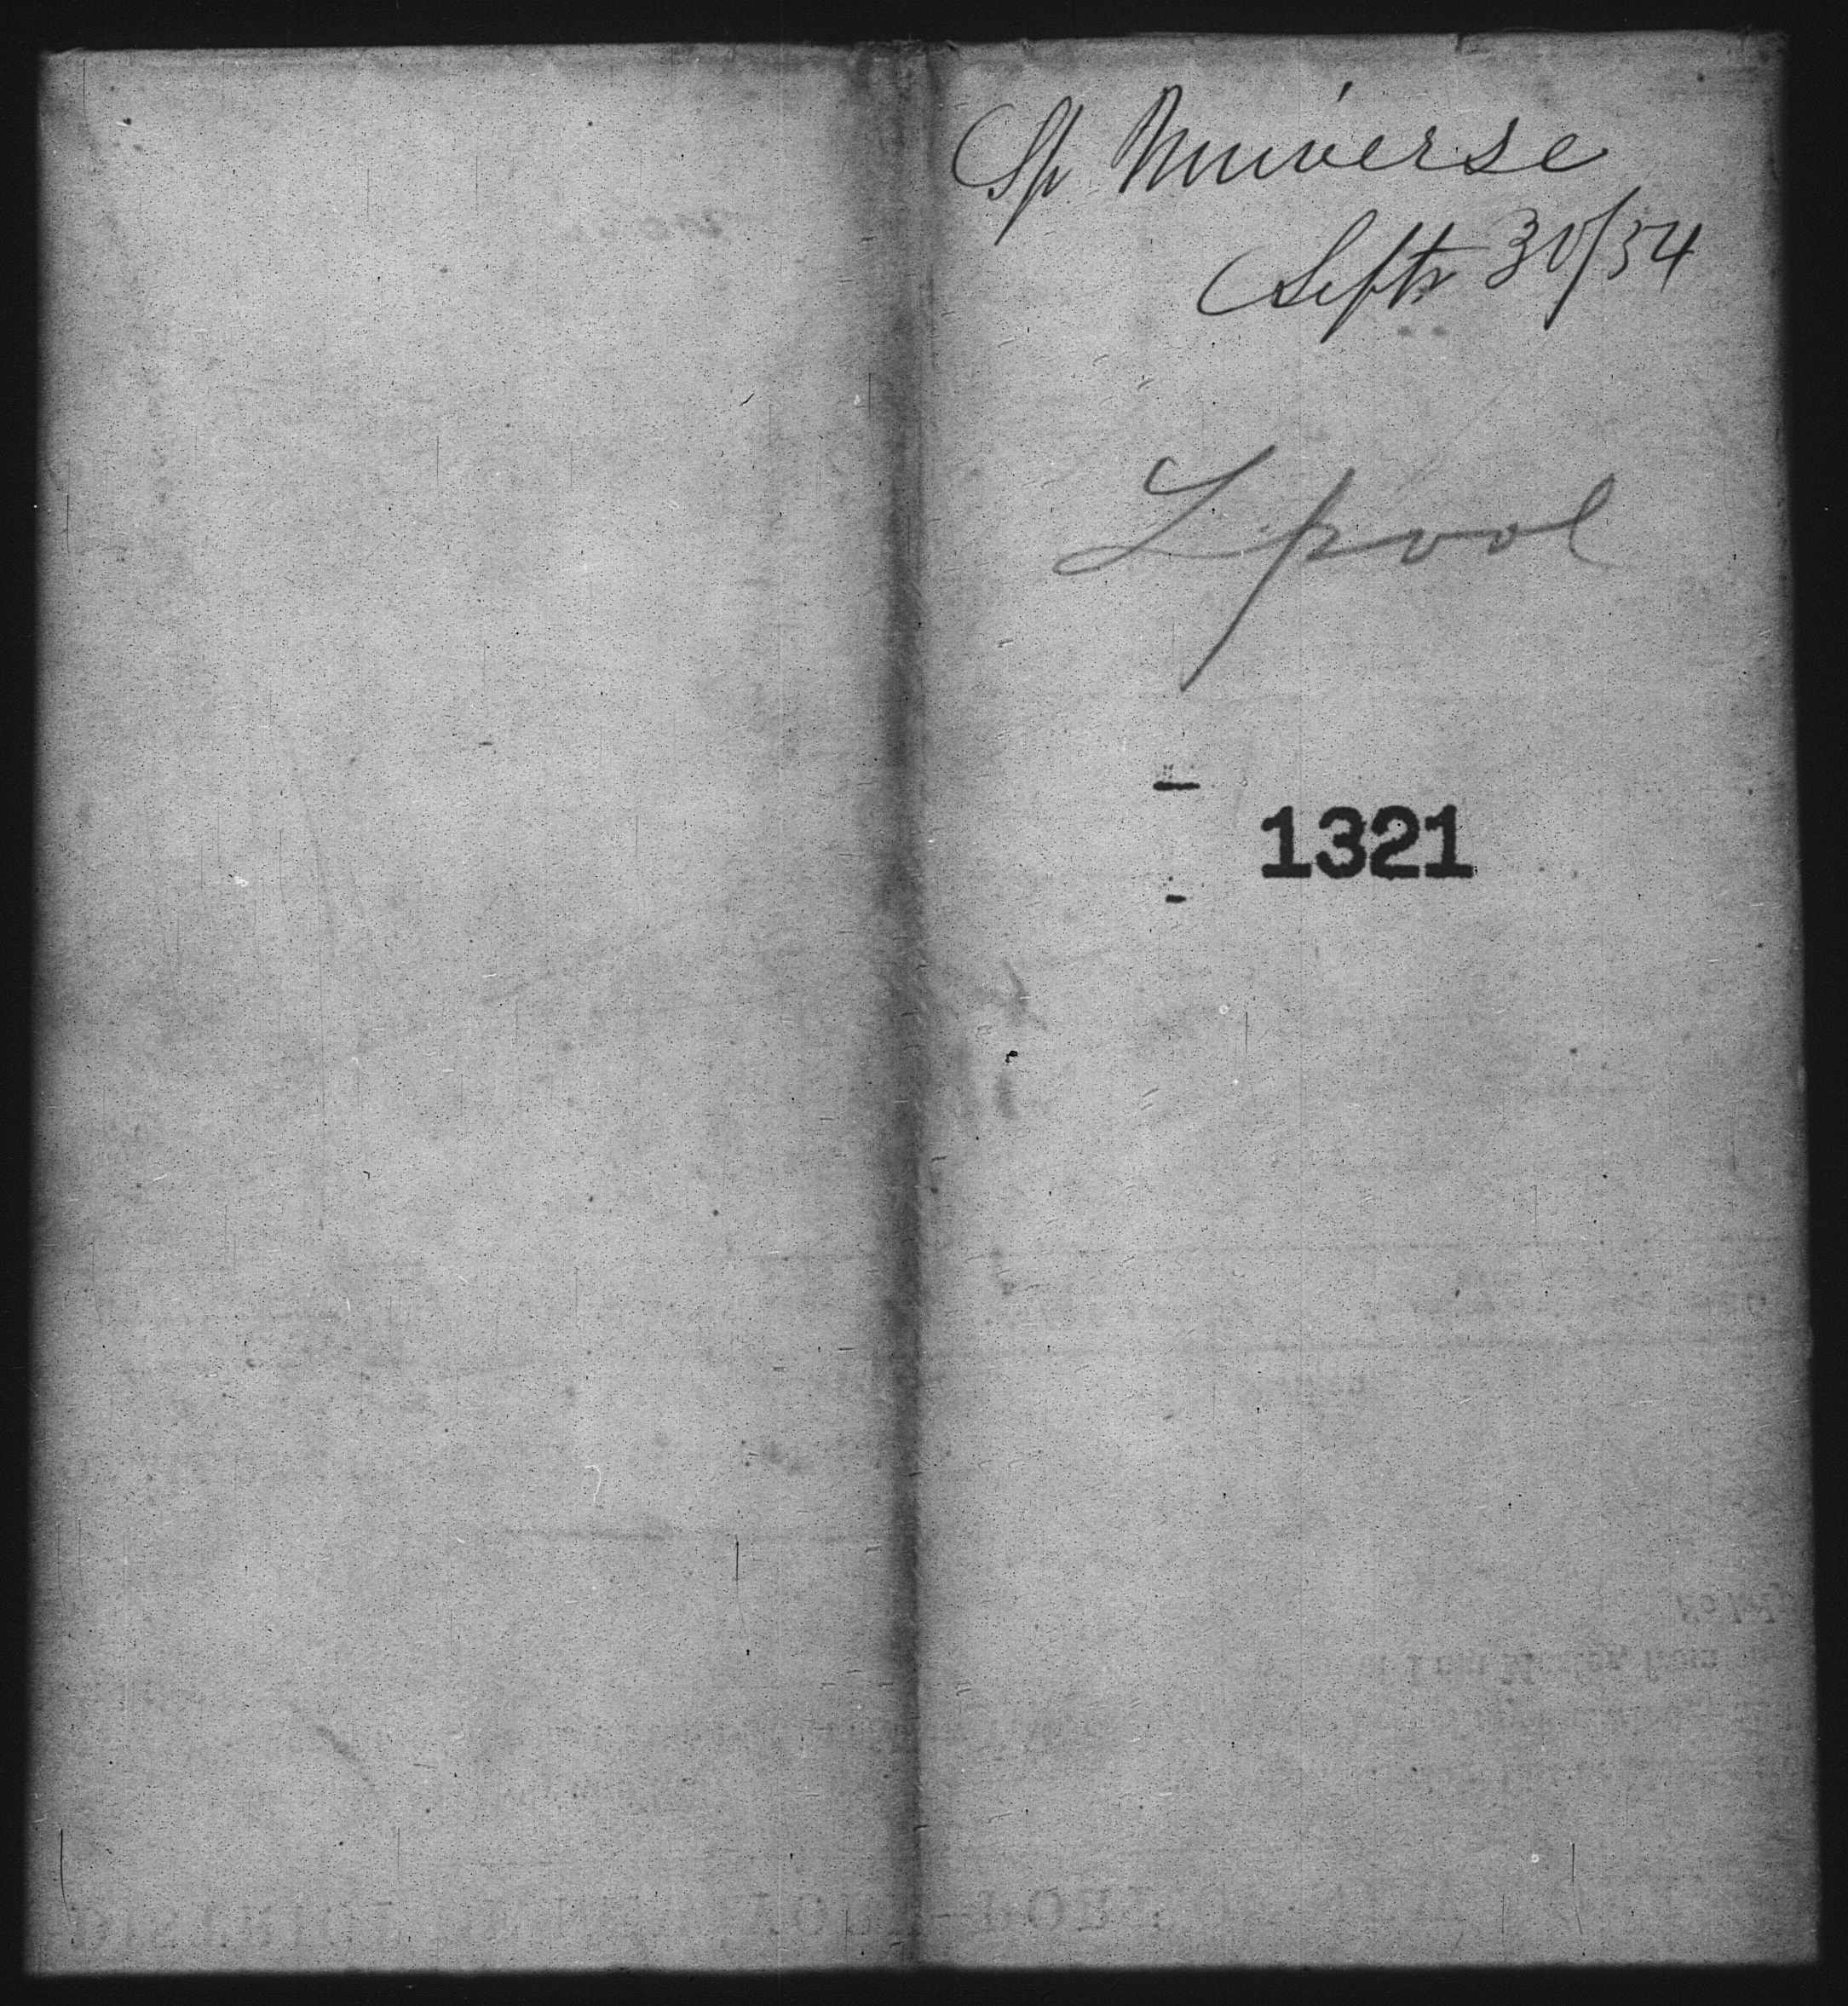 Sp Universe
Septr 30/54
Lpool
1321